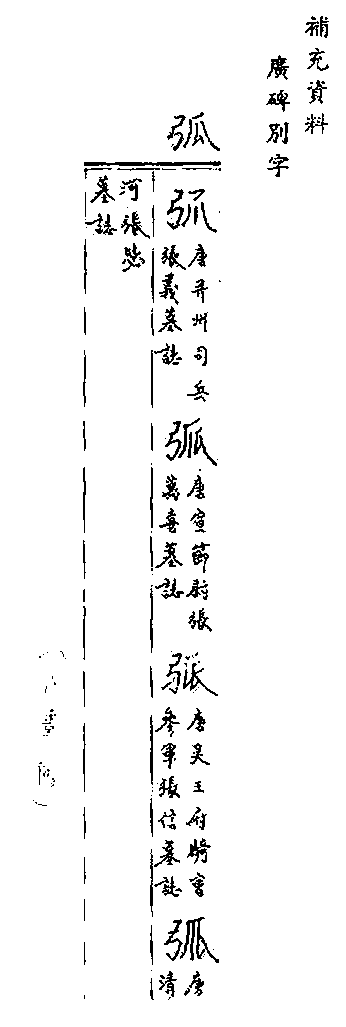 補充資料
廣碑別字
弧
弧
唐幷州司兵
張義墓誌
弧
唐宣節尉張
萬喜墓誌
唐吳王府騎曹
參軍張信墓誌
唐
清
河張
墓誌